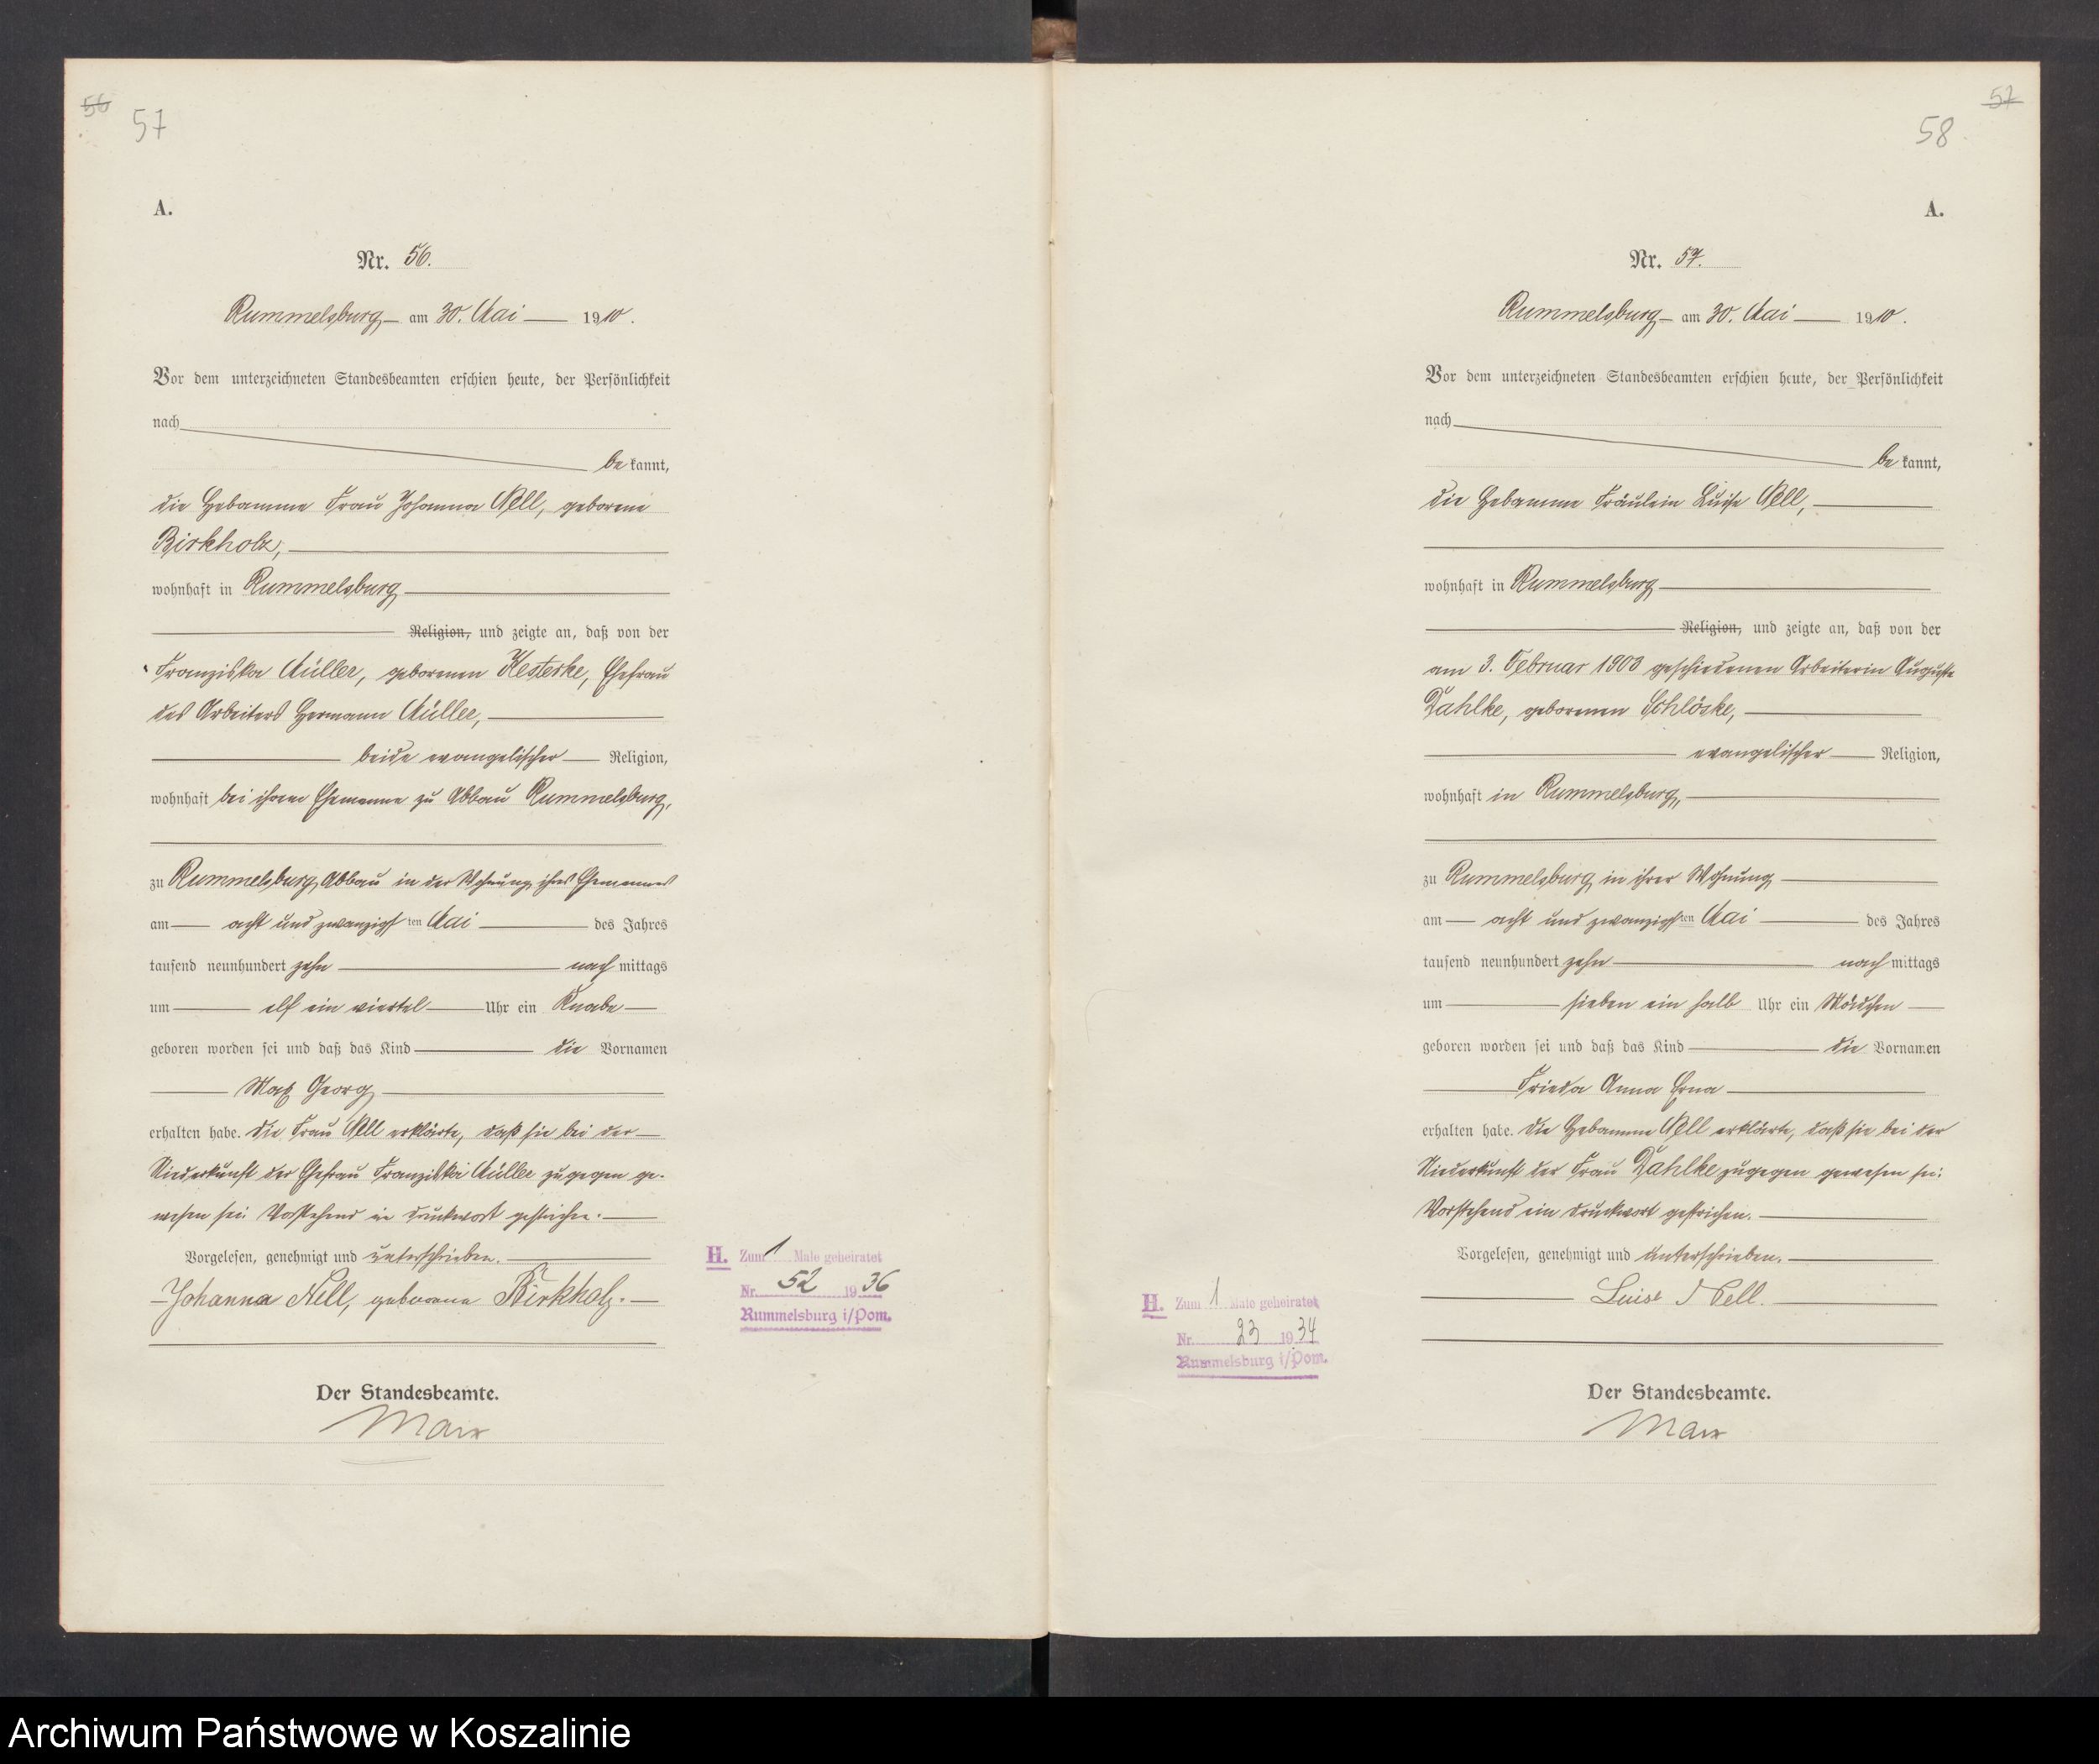 56
57
A.
Nr. 56.
Rummelsburg am 30. Mai 1910.
Vor dem unterzeichneten Standesbeamten erschien heute, der Persönlichkeit
nach
be kannt,
die Hebamme Frau Johanna Nell, geborene
Birkholz,
wohnhaft in Rummelsburg
Religion, und zeigte an, daß von der
Franziska Müller, geborenen Kesterke, Ehefrau
des Arbeiters Hermann Müller,
beide evangelischer Religion,
wohnhaft bei ihrem Ehemanne zu Abbau Rummelsburg,
zu Rummelsburg, Abbau in der Wohnung ihres Ehemannes
am acht und zwanzigsten Mai des Jahres
tausend neunhundert zehn nach mittags
um elf ein viertel Uhr ein Knabe
geboren worden sei und daß das Kind die Vornamen
Max Georg
erhalten habe. Die Frau Nell erklärte, daß sie bei der
Niederkunft der Ehefrau Franziska Müller zugegen ge-
wesen sei. Vorstehend ein Druckwort gestrichen.
Vorgelesen, genehmigt und unterschrieben.
Johanna Nell, geborene Birkholz.
Der Standesbeamte.
Marx
H. Zum 1 Male geheiratet
Nr. 52 1936
Rummelsburg i/Pom.
57
58
A.
Nr. 57.
Rummelsburg am 30. Mai 1910.
Vor dem unterzeichneten Standesbeamten erschien heute, der Persönlichkeit
nach
be kannt,
die Hebamme Fräulein Luise Nell,
wohnhaft in Rummelsburg
Religion, und zeigte an, daß von der
am 3. Februar 1903 geschiedenen Arbeiterin Auguste
Dahlke, geborenen Schlöske,
evangelischer Religion,
wohnhaft in Rummelsburg,
zu Rummelsburg in ihrer Wohnung
am acht und zwanzigsten Mai des Jahres
tausend neunhundert zehn nach mittags
um sieben ein halb Uhr ein Mädchen
geboren worden sei und daß das Kind die Vornamen
Frieda Anna Erna
erhalten habe. Die Hebamme Nell erklärte, daß sie bei der
Niederkunft der Frau Dahlke zugegen gewesen sei.
Vorstehend ein Druckwort gestrichen.
Vorgelesen, genehmigt und unterschrieben.
Luise Nell.
Der Standesbeamte.
Marx
H. Zum 1 Male geheiratet
Nr. 23 1934
Rummelsburg i/Pom.
Archiwum Państwowe w Koszalinie